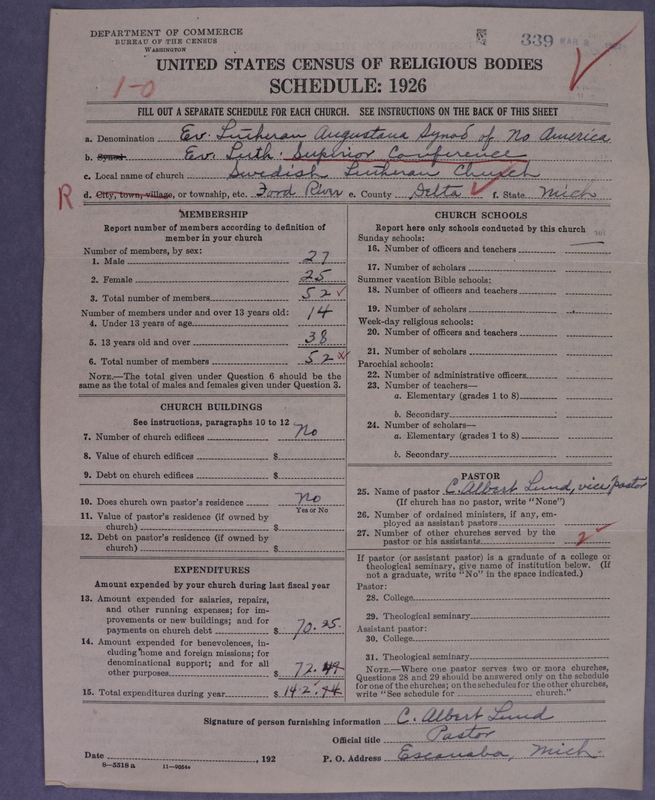 DEPARTMENT OF COMMERCE
BUREAU OF THE CENSUS
WASHINGTON
339 MAR
UNITED STATES CENSUS OF RELIGIOUS BODIES
SCHEDULE: 1926
1-0
FILL OUT A SEPARATE SCHEDULE FOR EACH CHURCH. SEE INSTRUCTIONS ON THE BACK OF THIS SHEET
a. Denomination Ev. Lutheran Augustana Synod of No America
b. Synod Ev. Luth. Superior Conference
c. Local name of church Swedish Lutheran Church
R d. City, town, village, or township, etc. Ford River e. County Delta f. State Mich
MEMBERSHIP
Report number of members according to definition of
member in your church
Number of members, by sex:
1. Male 27
2. Female 25
3. Total number of members 52
Number of members under and over 13 years old: 14
4. Under 13 years of age
5. 13 years old and over 38
6. Total number of members 52
NOTE.—The total given under Question 6 should be the
same as the total of males and females given under Question 3.
CHURCH BUILDINGS
See instructions, paragraphs 10 to 12
7. Number of church edifices No
8. Value of church edifices $
9. Debt on church edifices $
10. Does church own pastor's residence No
Yes or No
11. Value of pastor's residence (if owned by
church) $
12. Debt on pastor's residence (if owned by
church) $
EXPENDITURES
Amount expended by your church during last fiscal year
13. Amount expended for salaries, repairs,
and other running expenses; for im-
provements or new buildings; and for
payments on church debt $ 70.25
14. Amount expended for benevolences, in-
cluding home and foreign missions; for
denominational support; and for all
other purposes $ 72.49
15. Total expenditures during year $ 142.74
CHURCH SCHOOLS
Report here only schools conducted by this church
Sunday schools:
16. Number of officers and teachers
17. Number of scholars
Summer vacation Bible schools:
18. Number of officers and teachers
19. Number of scholars
Week-day religious schools:
20. Number of officers and teachers
21. Number of scholars
Parochial schools:
22. Number of administrative officers
23. Number of teachers—
a. Elementary (grades 1 to 8)
b. Secondary
24. Number of scholars—
a. Elementary (grades 1 to 8)
b. Secondary
PASTOR
25. Name of pastor C. Albert Lund, vice pastor
(If church has no pastor, write "None")
26. Number of ordained ministers, if any, em-
ployed as assistant pastors
27. Number of other churches served by the
pastor or his assistants 2
If pastor (or assistant pastor) is a graduate of a college or
theological seminary, give name of institution below. (If
not a graduate, write "No" in the space indicated.)
Pastor:
28. College
29. Theological seminary
Assistant pastor:
30. College
31. Theological seminary
NOTE.—Where one pastor serves two or more churches,
Questions 28 and 29 should be answered only on the schedule
for one of the churches; on the schedules for the other churches,
write "See schedule for church."
Signature of person furnishing information C. Albert Lund
Official title Pastor
Date , 192 P. O. Address Escanaba, Mich.
8-5518 a 11-9054a